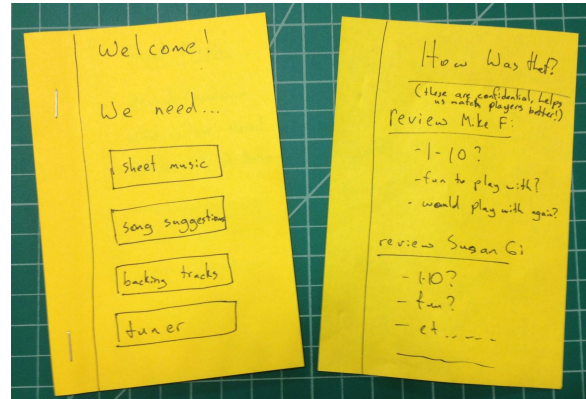 Welcome!
We need...
sheet music
song suggestions
backing tracks
tuner
How Was that?
(these are confidential, helps
us match players better!)
review Mike F:
- 1-10?
- fun to play with?
- would play with again?
review Susan G:
- 1-10?
- fun?
- et......